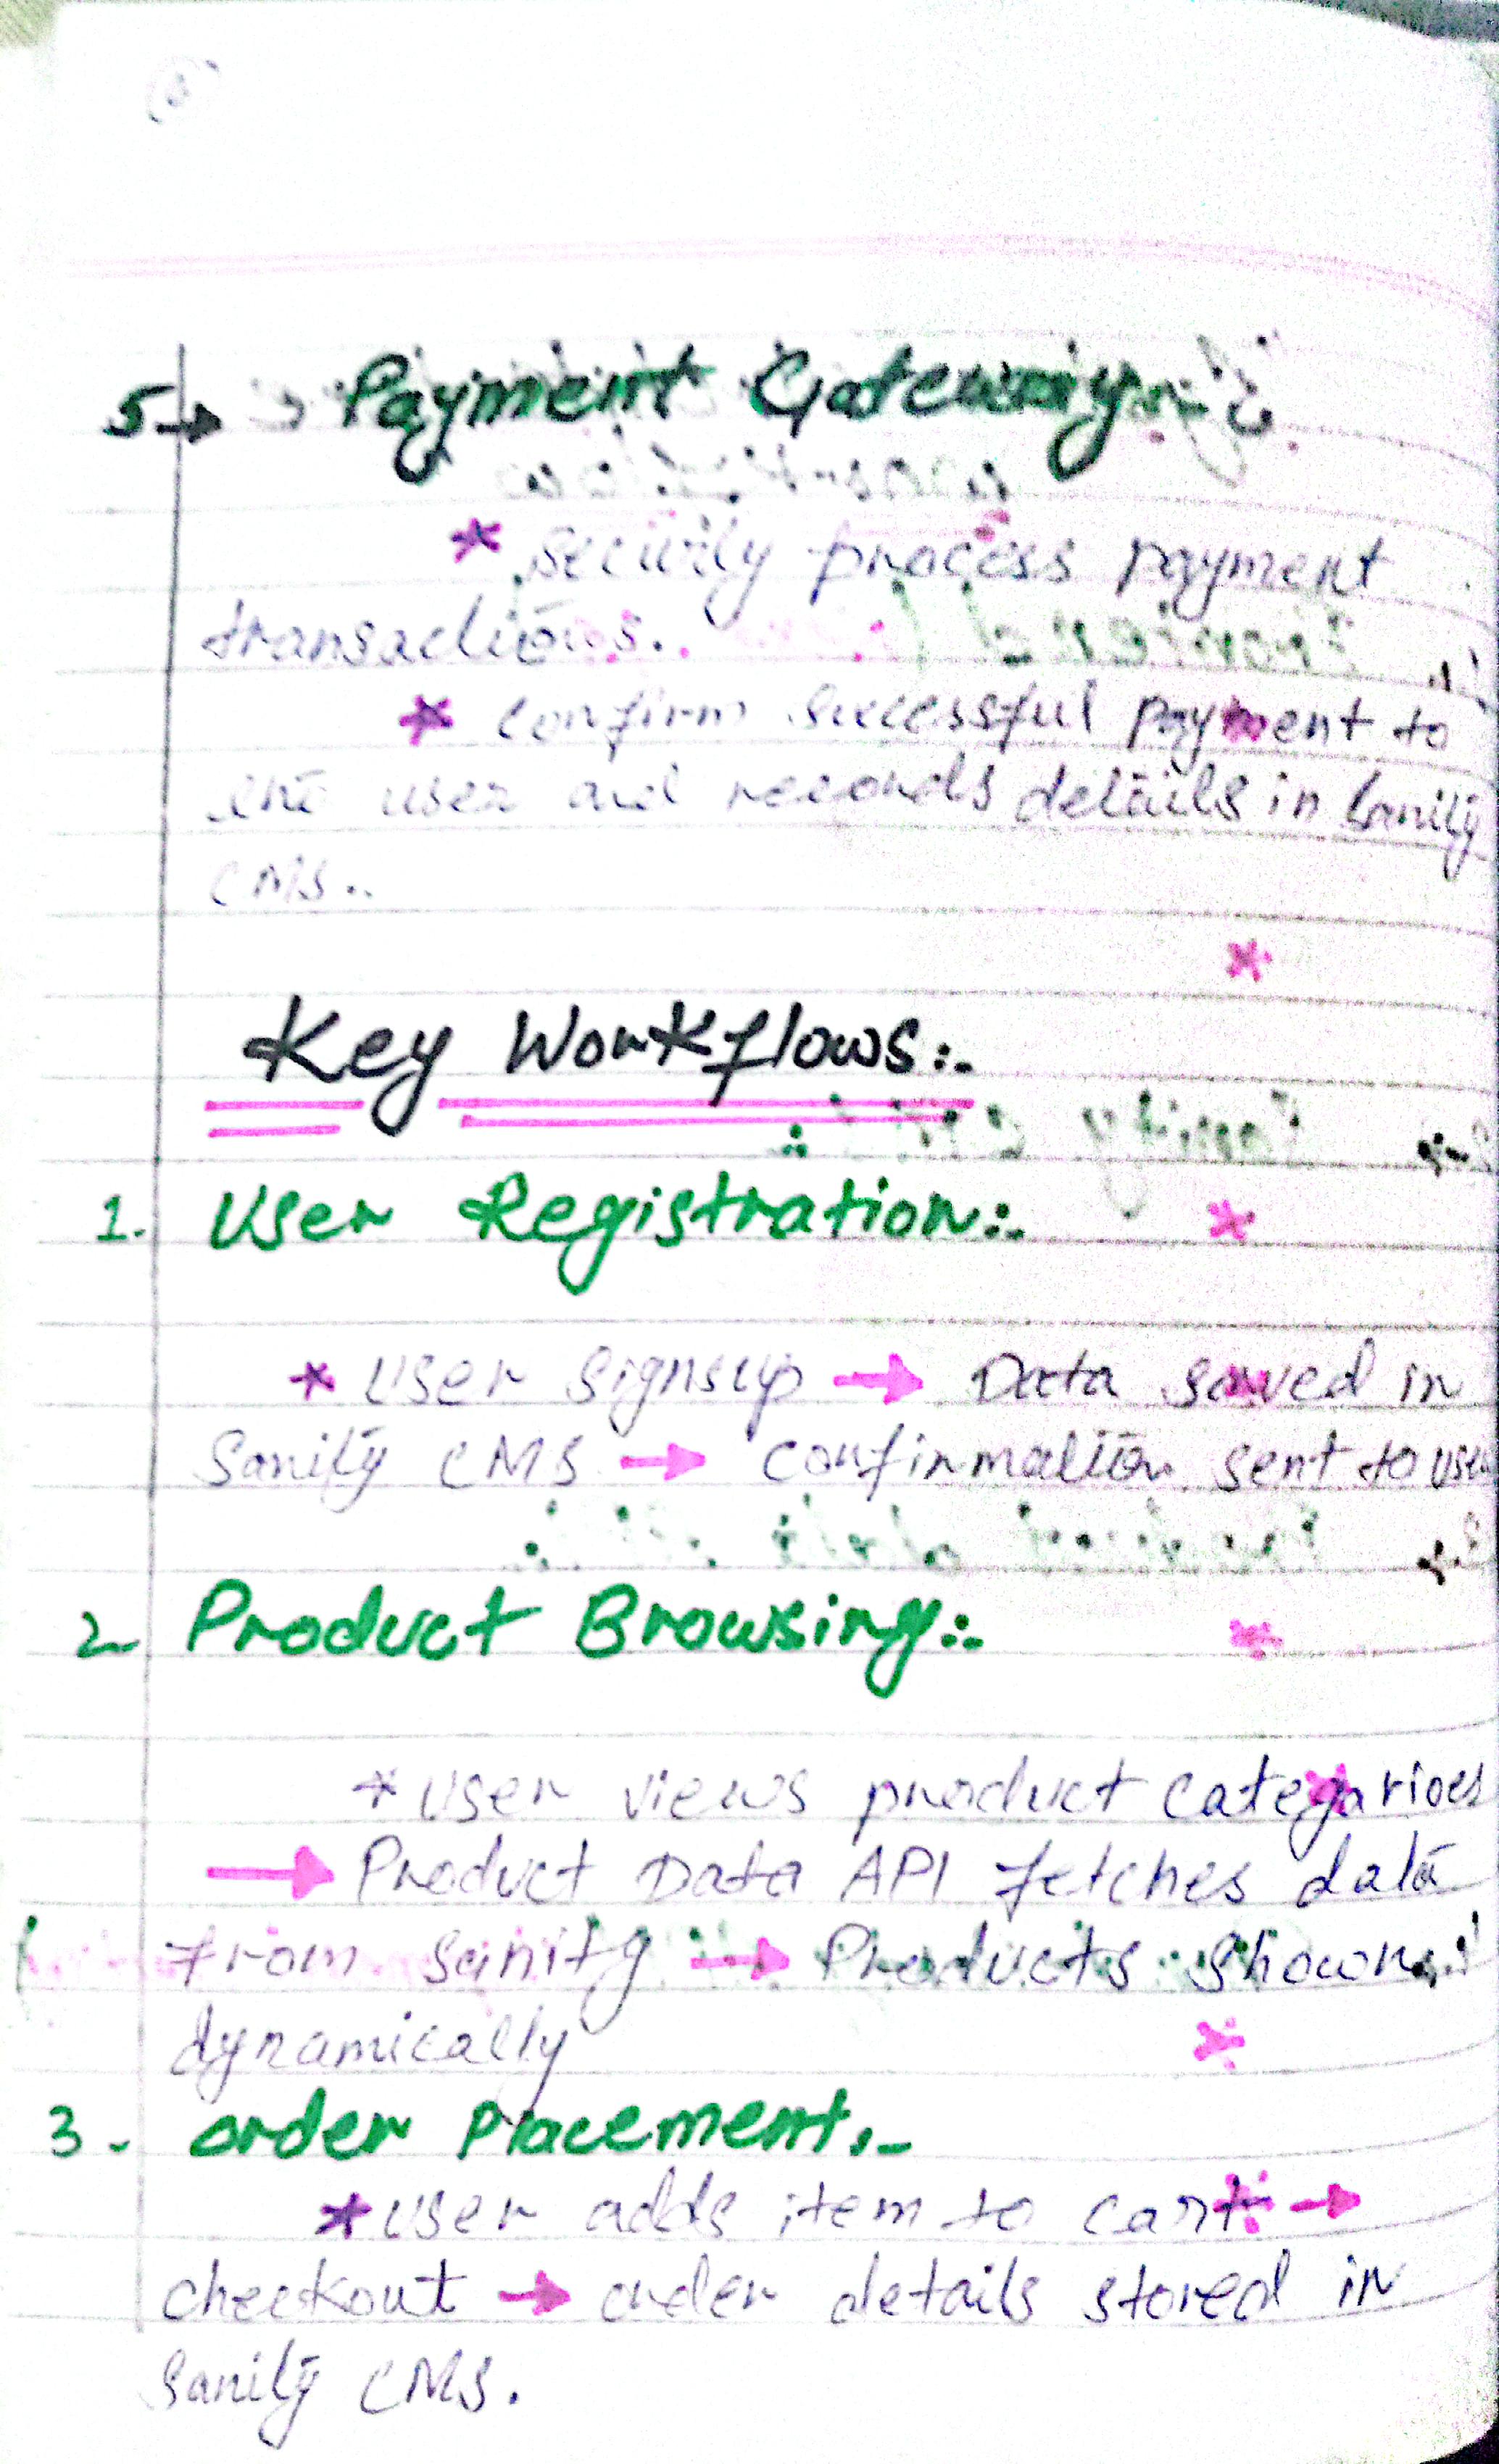 5→ Payment Gateway:-
* Security process payment
transactions.
* confirm successful payment to
the user and records details in Sanity
CMS..
Key Workflows:-
1. User Registration:-
* User Signsup → Data saved in
Sanity CMS → confirmation sent to user
2 Product Browsing:-
* User views product categories
→ Product Data API fetches data
from sanity → Products shown
dynamically
3. order Placement:-
* User adds item to cart →
checkout → order details stored in
Sanity CMS.